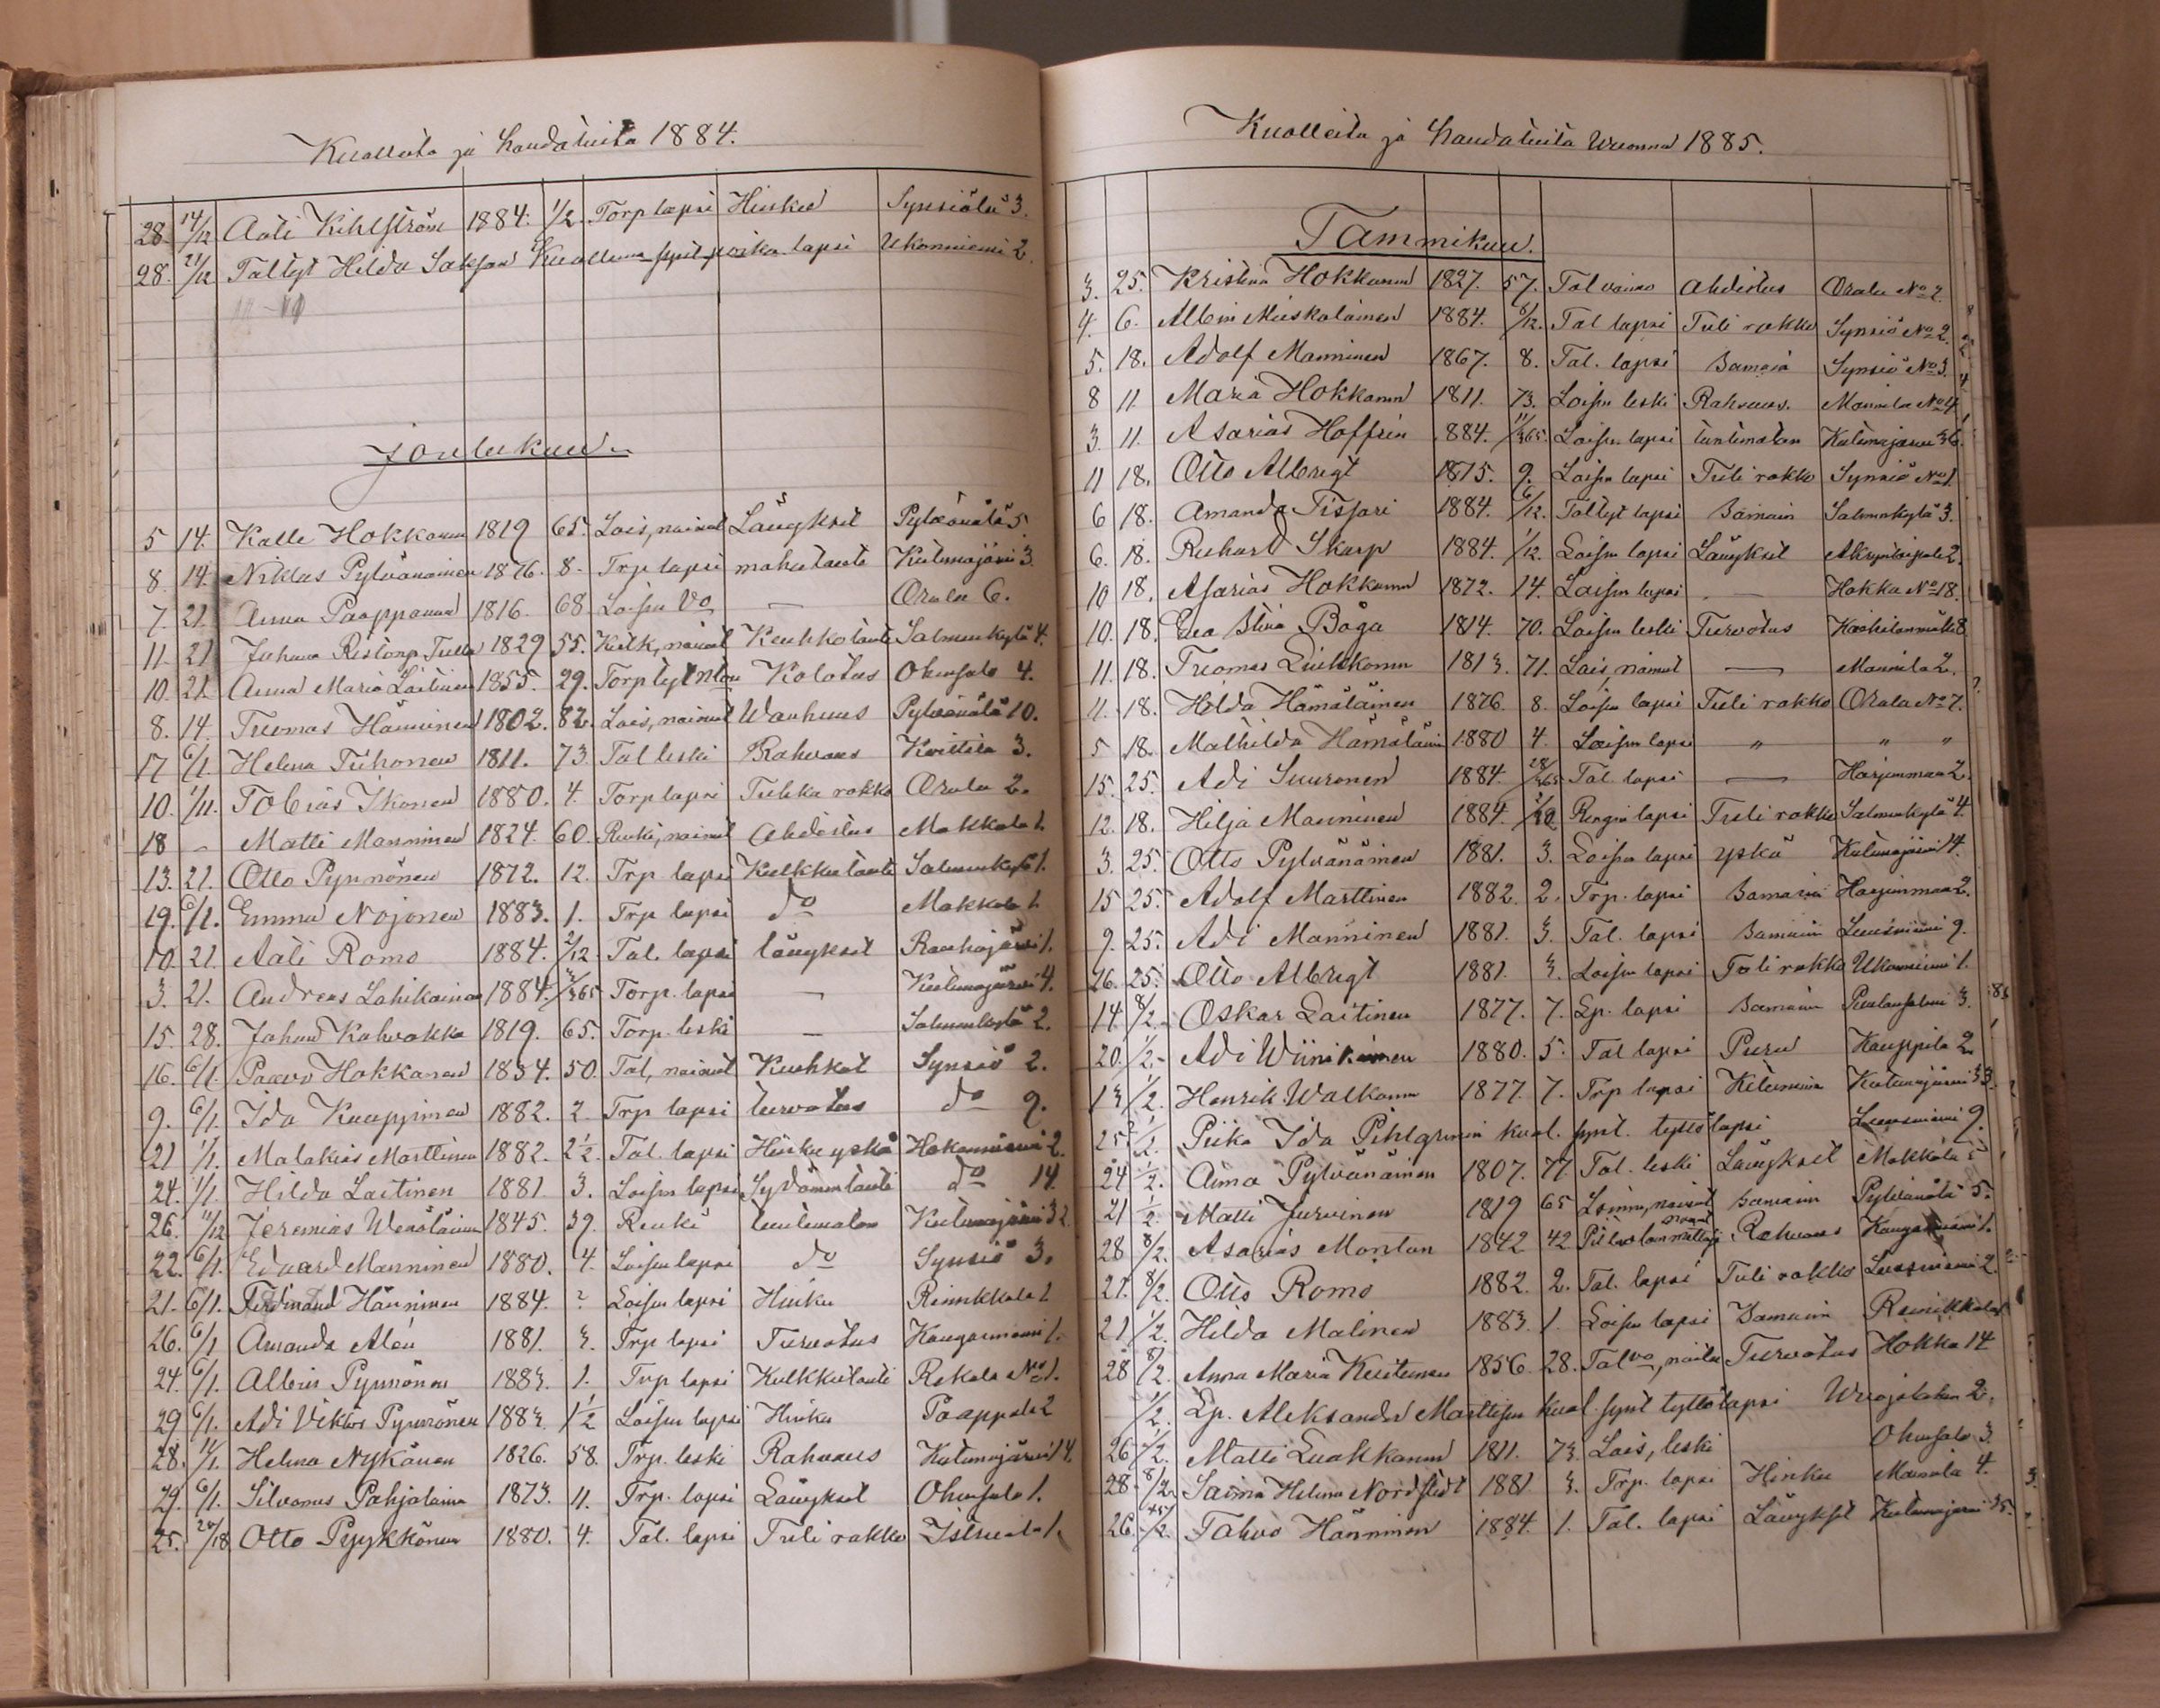 Kuolleita ja haudatuita 1884.
28. 14/12 Aati Kihlström 1884. 1/2. Torp lapsi Hinku Synsiälä 3.
28. 21/12 Tal tyt Hilda Kuolluna synt. poika lapsi Ukonniemi 2.
Joulukuu.
5 14. Kalle Hokkanen 1819 65. Lois, nainut Längkset Pylvänälä 5.
8 14. Niklas Pylvänäinen 1876. 8. Trp lapsi mahataute Kutemajärvi 3.
7 21. Anna Paappanen 1816. 68 Loisen Vo — Orala 6.
11. 21 Juhana Tulla 1829 55. nainut Keuhkotaute Salmenkylä 4.
10. 21. Anna Maria Laitinen 1855. 29. Torp tyt Kolotus Ohensalo 4.
8. 14. Tuomas Hänninen 1802. 82. Lois, nainut Wanhuus Pylvänälä 10.
17 6/1. Helena Tiihonen 1811. 73. Tal leski Rahvaus Kvittilä 3.
10. 1/11. Tobias Ikonen 1880. 4. Torp lapsi Tuhka rokko Orala 2.
18 – Matti Manninen 1824. 60. Renki, nainut Ahdistus Makkola 1.
13. 21. Otto Pynnönen 1872. 12. Trp lapsi Kulkkutaute Salmenkylä 1.
19. 6/1. Emma Nojonen 1883. 1. Trp lapsi do Makkola 1.
10. 21. Aati Romo 1884. 2/12 Tal. lapsi längkset Rauhajärvi 1.
3. 21. Andreas Lahikainen 1884. 3/365 Torp. lapsi — Kutemajärvi 4.
15. 28. Johan Kahvakka 1819. 65. Torp. leski — Salmenkylä 2.
16. 6/1. Paavo Hokkanen 1834. 50. Tal, nainut Keuhkot Synsiö 2.
9. 6/1. Ida Kauppinen 1882. 2 Trp lapsi turvotus do 9.
21 1/1. Malakias Marttinen 1882. 2 1/2. Tal. lapsi Hinkuyskä Hokanniemi 2.
24. 1/1. Hilda Laitinen 1881 3. Loisen lapsi Sydämmentaute do 14
26. 11/12 Jeremias Wenäläinen 1845. 39. Renki tuntematon Kutemajärvi 32
22. 6/1. Eduard Manninen 1880. 4. Loisen lapsi do Synsiö 3.
21. 6/1. Ferdinand Hänninen 1884. ? Loisen lapsi Hinku Rinnkkala 1
26. 6/1 Amanda Alén 1881. 3. Trp lapsi Turvotus Kangasniemi 1.
24. 6/1. Albin Pynnönen 1883. 1. Trp lapsi Kulkkutaute Rekola No 1.
29 6/1. Adi Viktor Pynnönen 1883. 1 1/2 Loisen lapsi Hinku Paappala 2
28. 11/1. Helena Nykänen 1826. 58. Trp. leski Rahvaus Kutemajärvi 14.
29. 6/1. Silvanus Pohjolainen 1873. 11. Trp. lapsi Längkset Ohensalo 1.
25. 20/18 Otto Pyykkönen 1880. 4. Tal. lapsi Tuli rokko Istruala 1.
Kuolleita ja haudatuita Wuonna 1885.
Tammikuu.
3. 25. Kristina Hokkanen 1827. 57. Tal vaimo Ahdistus Orala No 2.
4. 6. Albin Muskalainen 1884. 6/12. Tal lapsi Tuli rokko Synsiö No 2.
5. 18. Adolf Manninen 1867. 8. Tal. lapsi Samoin Synsiö No 3.
8 11. Maria Hokkanen 1811. 73. Loisen leski Rahvaus. Mannila No 4.
3. 11. Asarias Hoffrén 884. 11/365. Loisen lapsi tuntematon Kutemajärvi 36.
11 18. Otto Albregt 1875. 9. Loisen lapsi Tuli rokko Synsiö No 1.
6 18. Amanda Tissari 1884. 6/12. Tal tyt lapsi Samoin Salmenkylä 3.
6. 18. Richard Skarp 1884. 1/12. Loisen lapsi Längkset 2.
10 18. Asarias Hokkanen 1872. 14. Loisen lapsi — Hokka No 18.
10. 18. Eva Stina Båga 1814. 70. Loisen leski Turvotus 8
11. 18. Tuomas Liukkonen 1813. 71. Lois, nainut — Mannila 2.
11. 18. Hilda Hämäläinen 1876. 8. Loisen lapsi Tuli rokko Orala No 7.
5 18. Mathilda Hämäläinen 1880 4. Loisen lapsi " " "
15. 25. Adi Suuronen 1884. 28/365 Tal. lapsi — Harjunmaa 2.
12. 18. Hilja Manninen 1884. Rengin lapsi Tuli rokko Salmenkylä 4.
3. 25. Otto Pylvänäinen 1881. 3. Loisen lapsi yskä Kutemajärvi 14.
15 25. Adolf Marttinen 1882. 2. Trp. lapsi Samoin Harjunmaa 2.
9. 25. Adi Manninen 1881. 3. Tal. lapsi Samoin Luusniemi 9.
26. 25. Otto Albregt 1881. 3. Loisen lapsi Tuli rokko Ukonniemi 1.
14. 8/2. Oskar Laitinen 1877. 7. Lp. lapsi Samoin 3.
20. 1/2. Adi Wiinikainen 1880. 5. Tal lapsi Puru Kauppila 2.
13 1/2. Henrik Walkonen 1877. 7. Trp lapsi Kutemajärvi 33.
25. 1/2. Piika Ida Pihlgrenin kuol. synt. tyttö lapsi Luusniemi 9.
24 1/2. Anna Pylvänäinen 1807. 77 Tal. leski Längkset Makkola 5
21 1/2. Matti Jurvinen 1819 65 nainut Samoin Pylvänälä 5.
28 8/2. Asarias Montan 1842 42 nainut Rahvaus Kangasniemi 1.
21. 8/2. Otto Romo 1882. 2. Tal. lapsi Tuli rokko Luusniemi 2.
21 1/2. Hilda Malinen 1883. 1. Loisen lapsi Samoin Reinikkala
28 8/2. Anna Maria Kuitunen 1856. 28. Tal vo, naitu Turvotus Hokka 14
1/2. Lp. Aleksander Marttisen kuol. synt tyttölapsi Wuojalahti 2.
26 1/2. Matti Luukkonen 1811. 73. Lois, leski Ohensalo 3
28 8/2. Saima Helena Nordstedt 1881 3. Trp. lapsi Hinku Mannila 4.
26. 15/2. Tahvo Hänninen 1884. 1. Tal. lapsi Längkset Kutemajärvi 35.